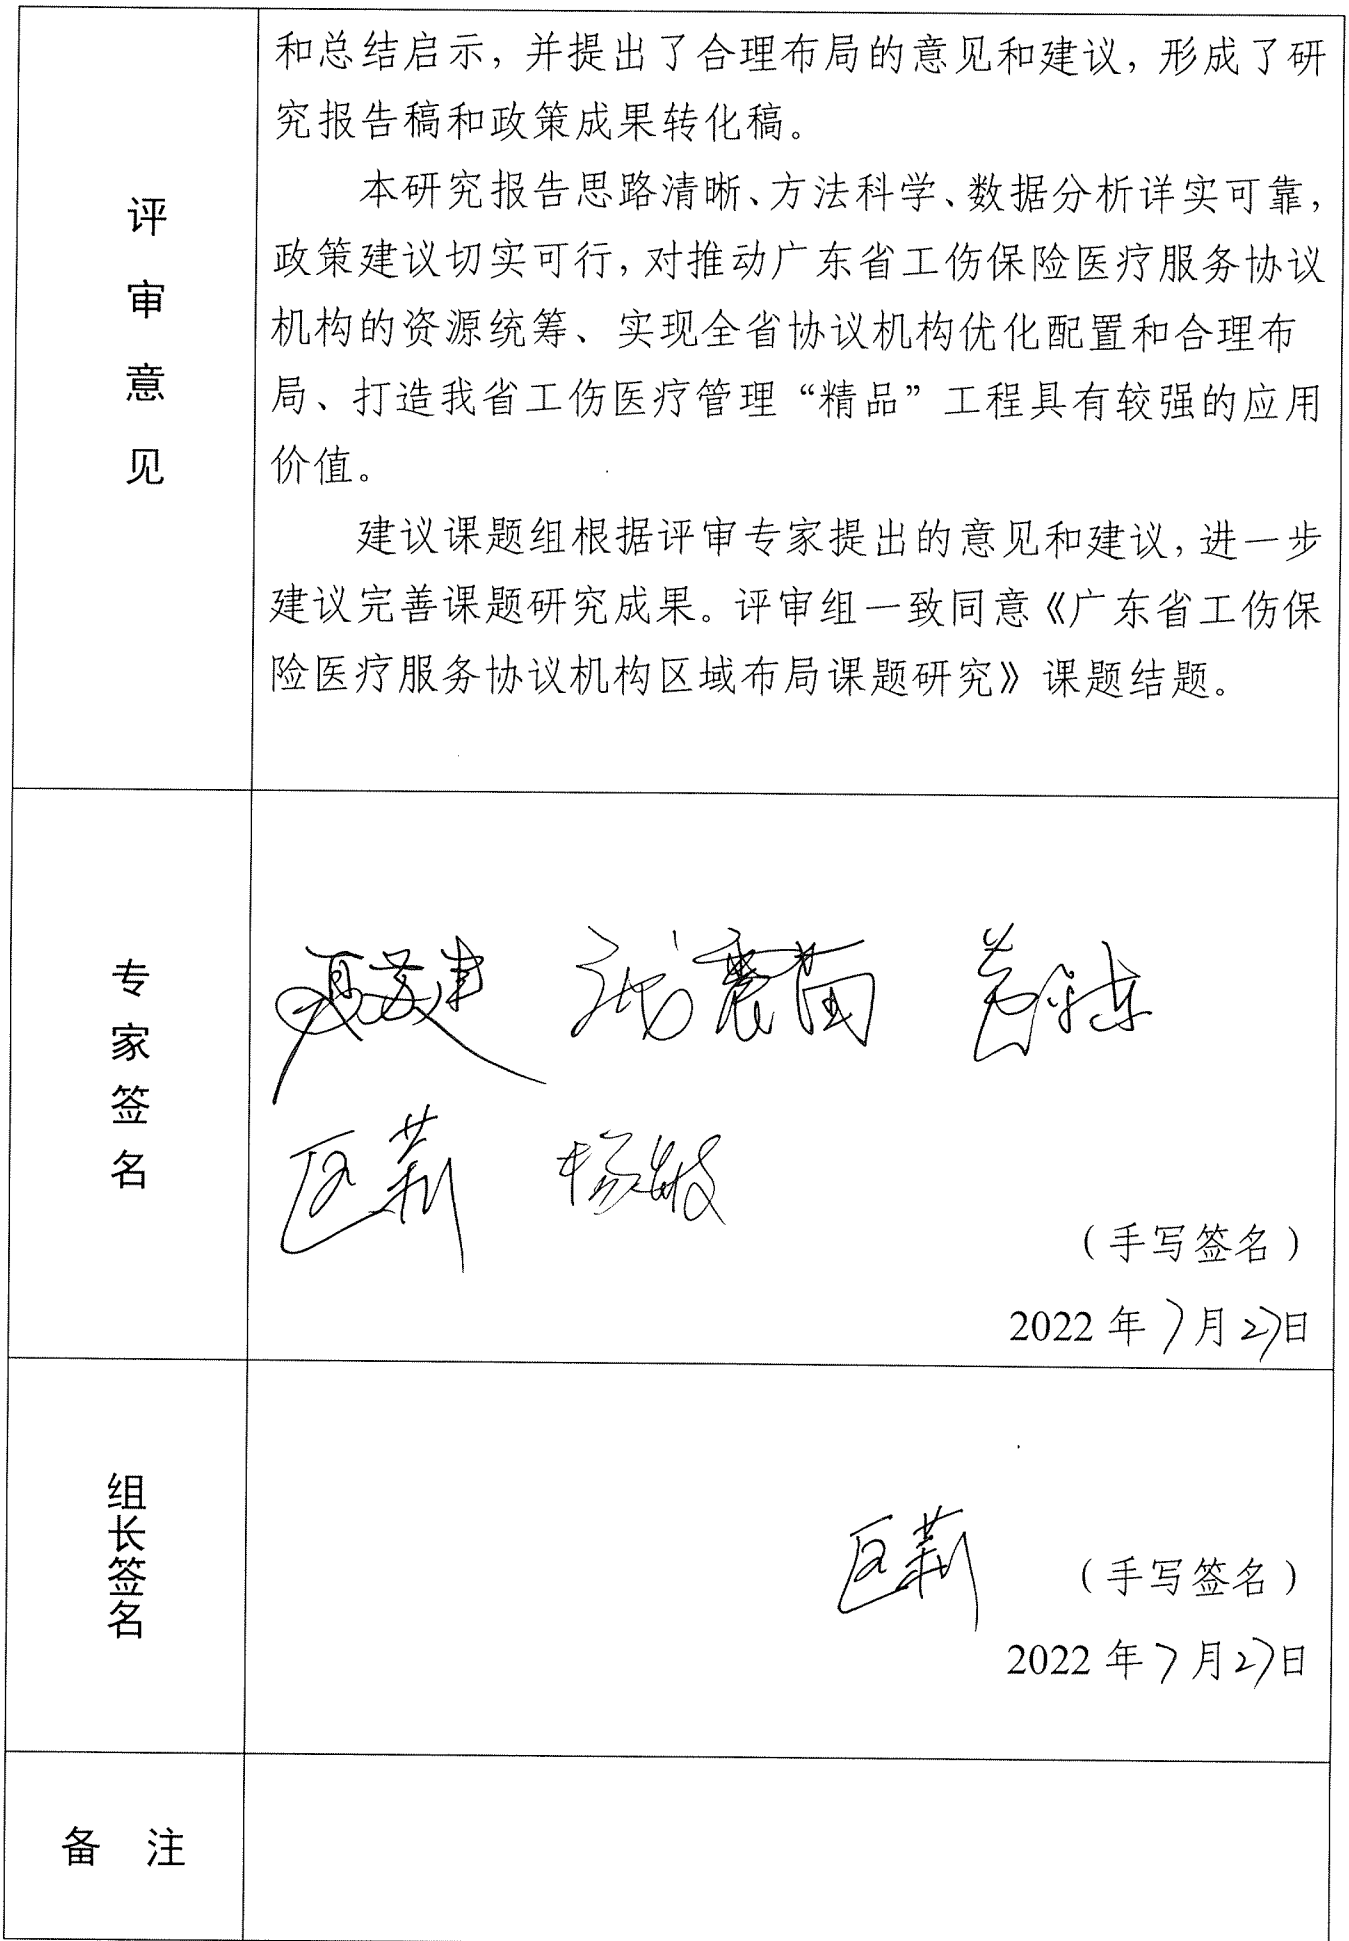 评审意见
和总结启示，并提出了合理布局的意见和建议，形成了研
究报告稿和政策成果转化稿。
本研究报告思路清晰、方法科学、数据分析详实可靠，
政策建议切实可行，对推动广东省工伤保险医疗服务协议
机构的资源统筹、实现全省协议机构优化配置和合理布
局、打造我省工伤医疗管理“精品”工程具有较强的应用
价值。
建议课题组根据评审专家提出的意见和建议，进一步
建议完善课题研究成果。评审组一致同意《广东省工伤保
险医疗服务协议机构区域布局课题研究》课题结题。
专家签名
匡莉 杨敏
（手写签名）
2022 年 7 月 27 日
组长签名
匡莉 （手写签名）
2022 年 7 月 27 日
备 注